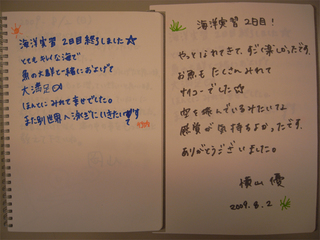 海洋実習 2日目終了しました☆
とてもキレイな海で
魚の大群と一緒におよげて
大満足♂
ほんとにみれて幸せでした。
また別世界へ泳ぎにいきたいです
海洋実習 2日目!
やっとなれてきて、すごく楽しかったです。
お魚もたくさんみれて
サイコーでした☆
空を飛んでいるみたいな
感覚が気持ちよかったです。
ありがとうございました。
横山 優
2009. 8. 2